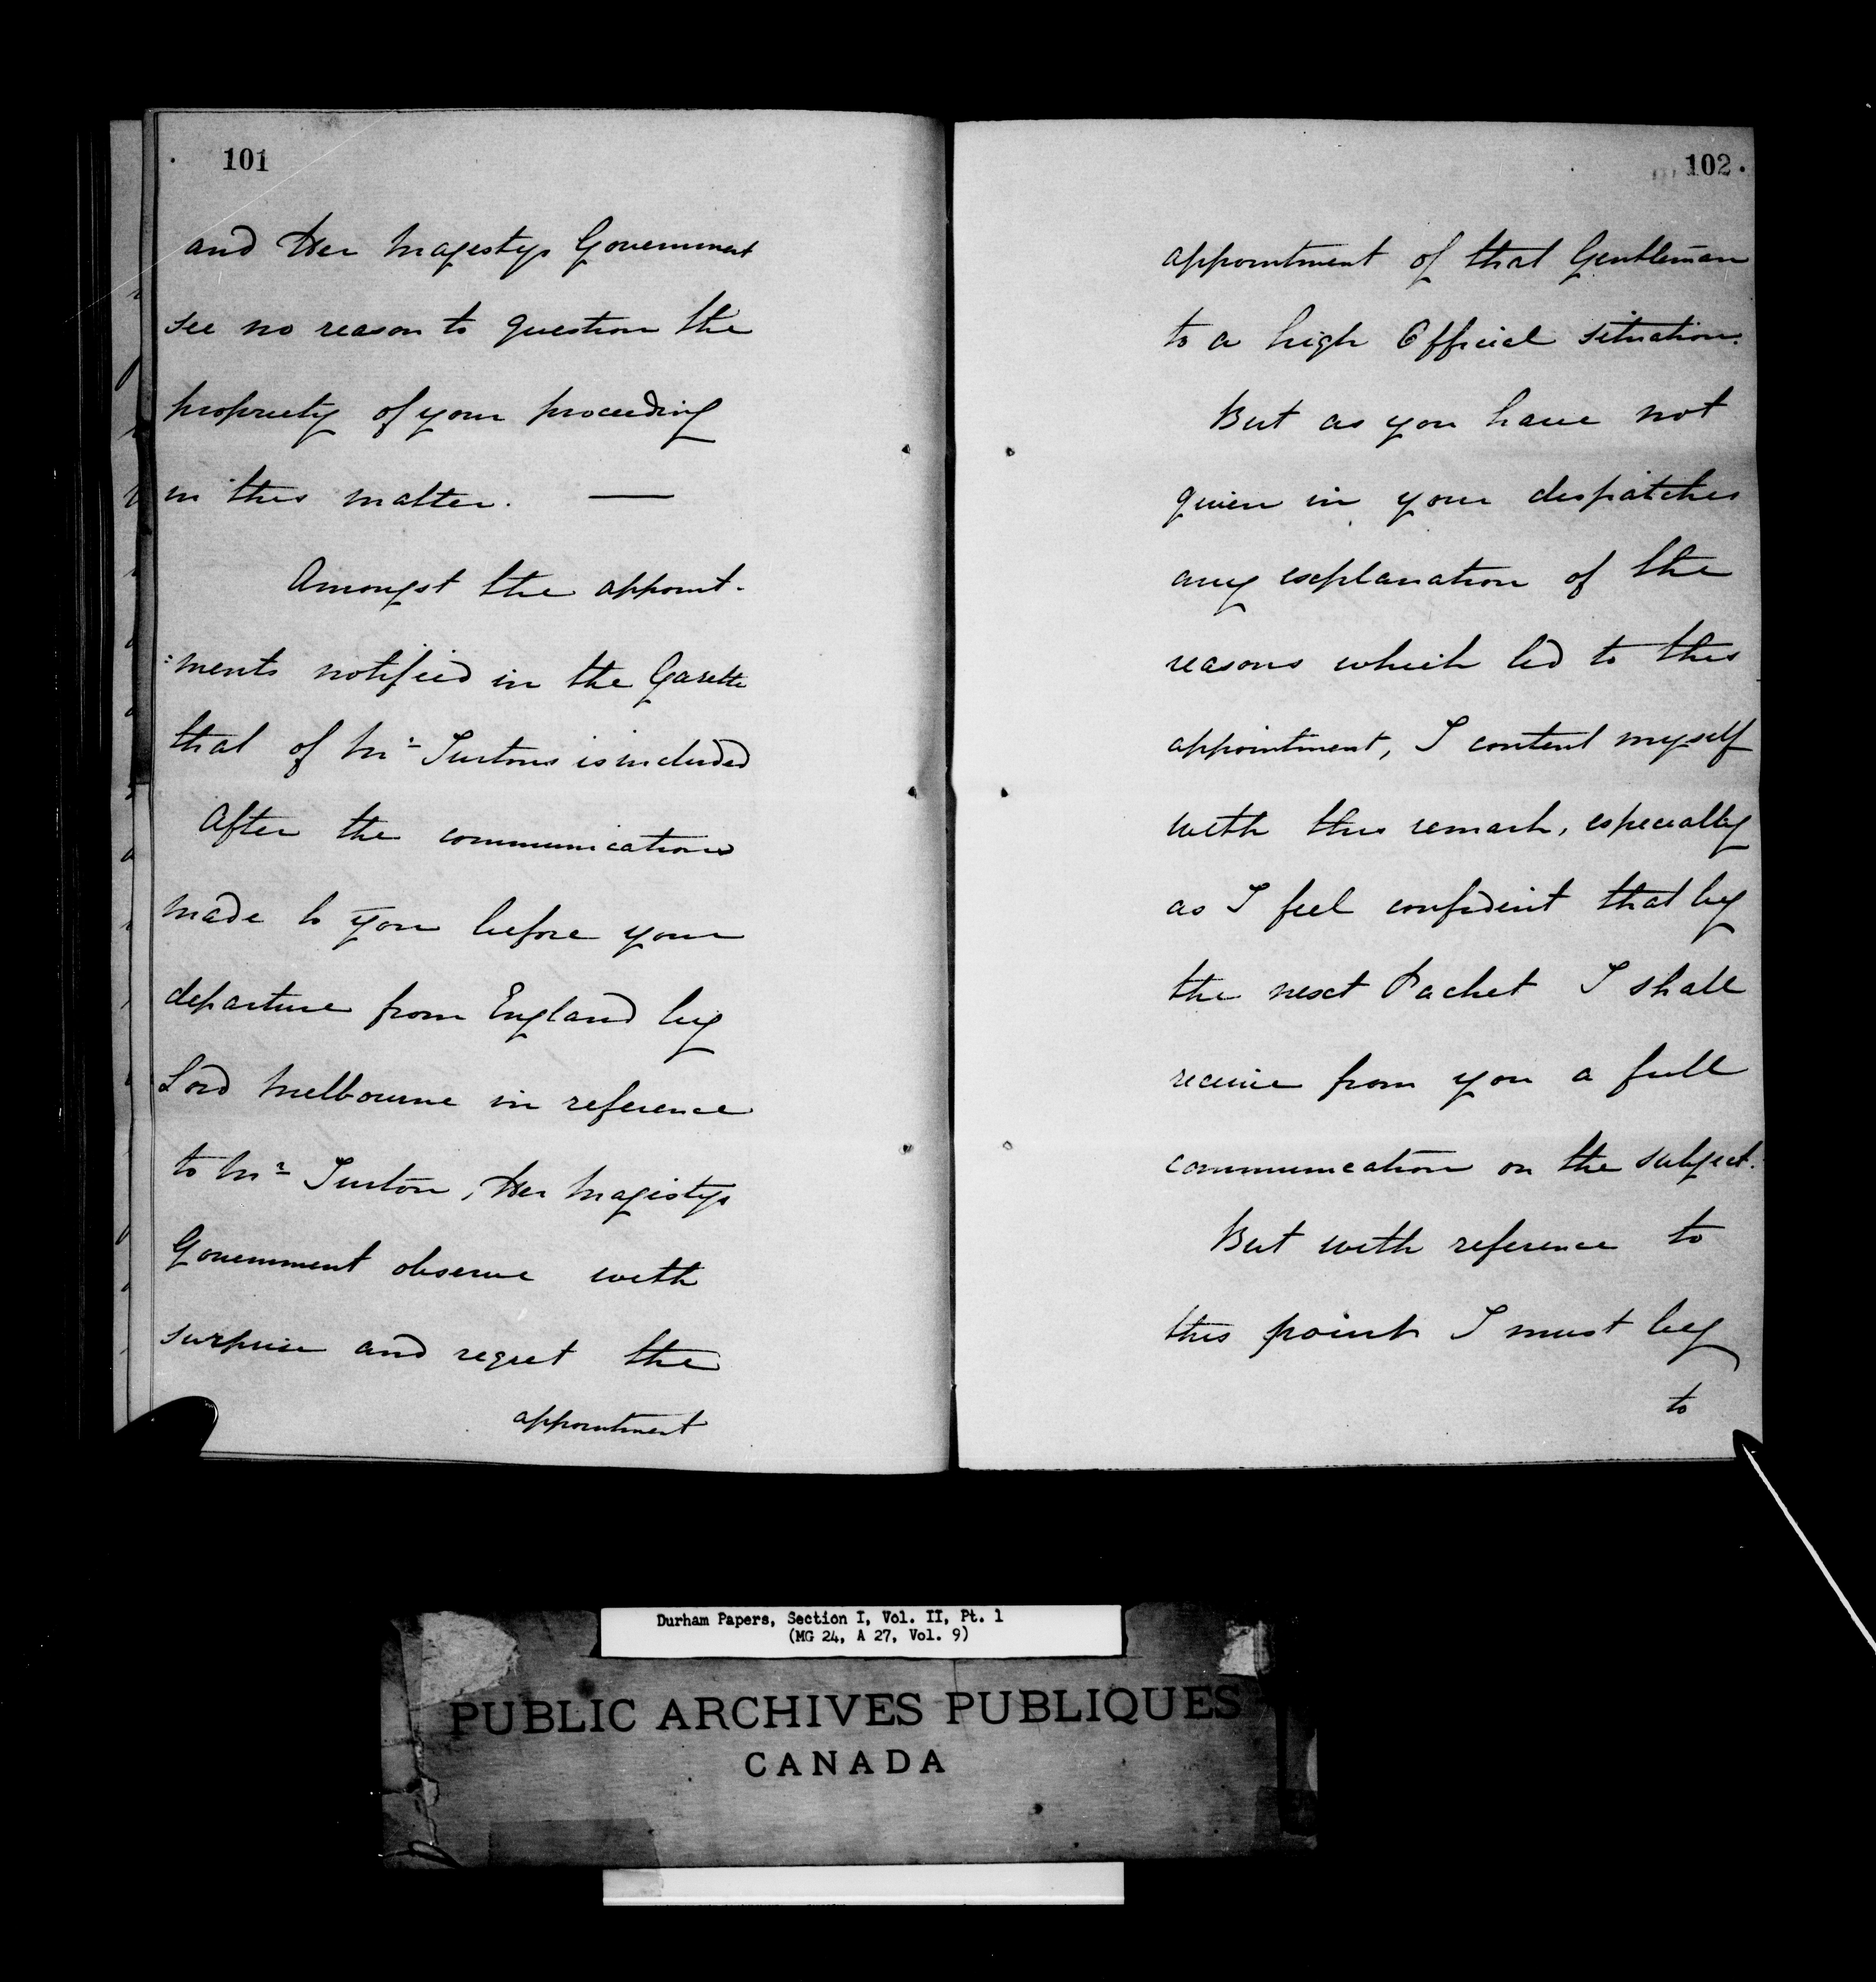 101
and Her Majestys Government
see no reason to question the
propriety of your proceeding
in this matter. —
Amongst the appoint-
:ments notified in the Gazette
that of Mr Turtons is included
After the communications
made to you before your
departure from England by
Lord Melbourne in reference
to Mr Turton, Her Majestys
Government observe with
surprise and regret the
appointment
102.
appointment of that Gentleman
to a high Official situation.
But as you have not
given in your despatches
any explanation of the
reasons which led to this
appointment, I content myself
with this remark, especially
as I feel confident that by
the next Packet I shall
receive from you a full
communication on the subject.
But with reference to
this point I must beg
to
Durham Papers, Section I, Vol. II, Pt. 1
(MG 24, A 27, Vol. 9)
PUBLIC ARCHIVES PUBLIQUES
CANADA